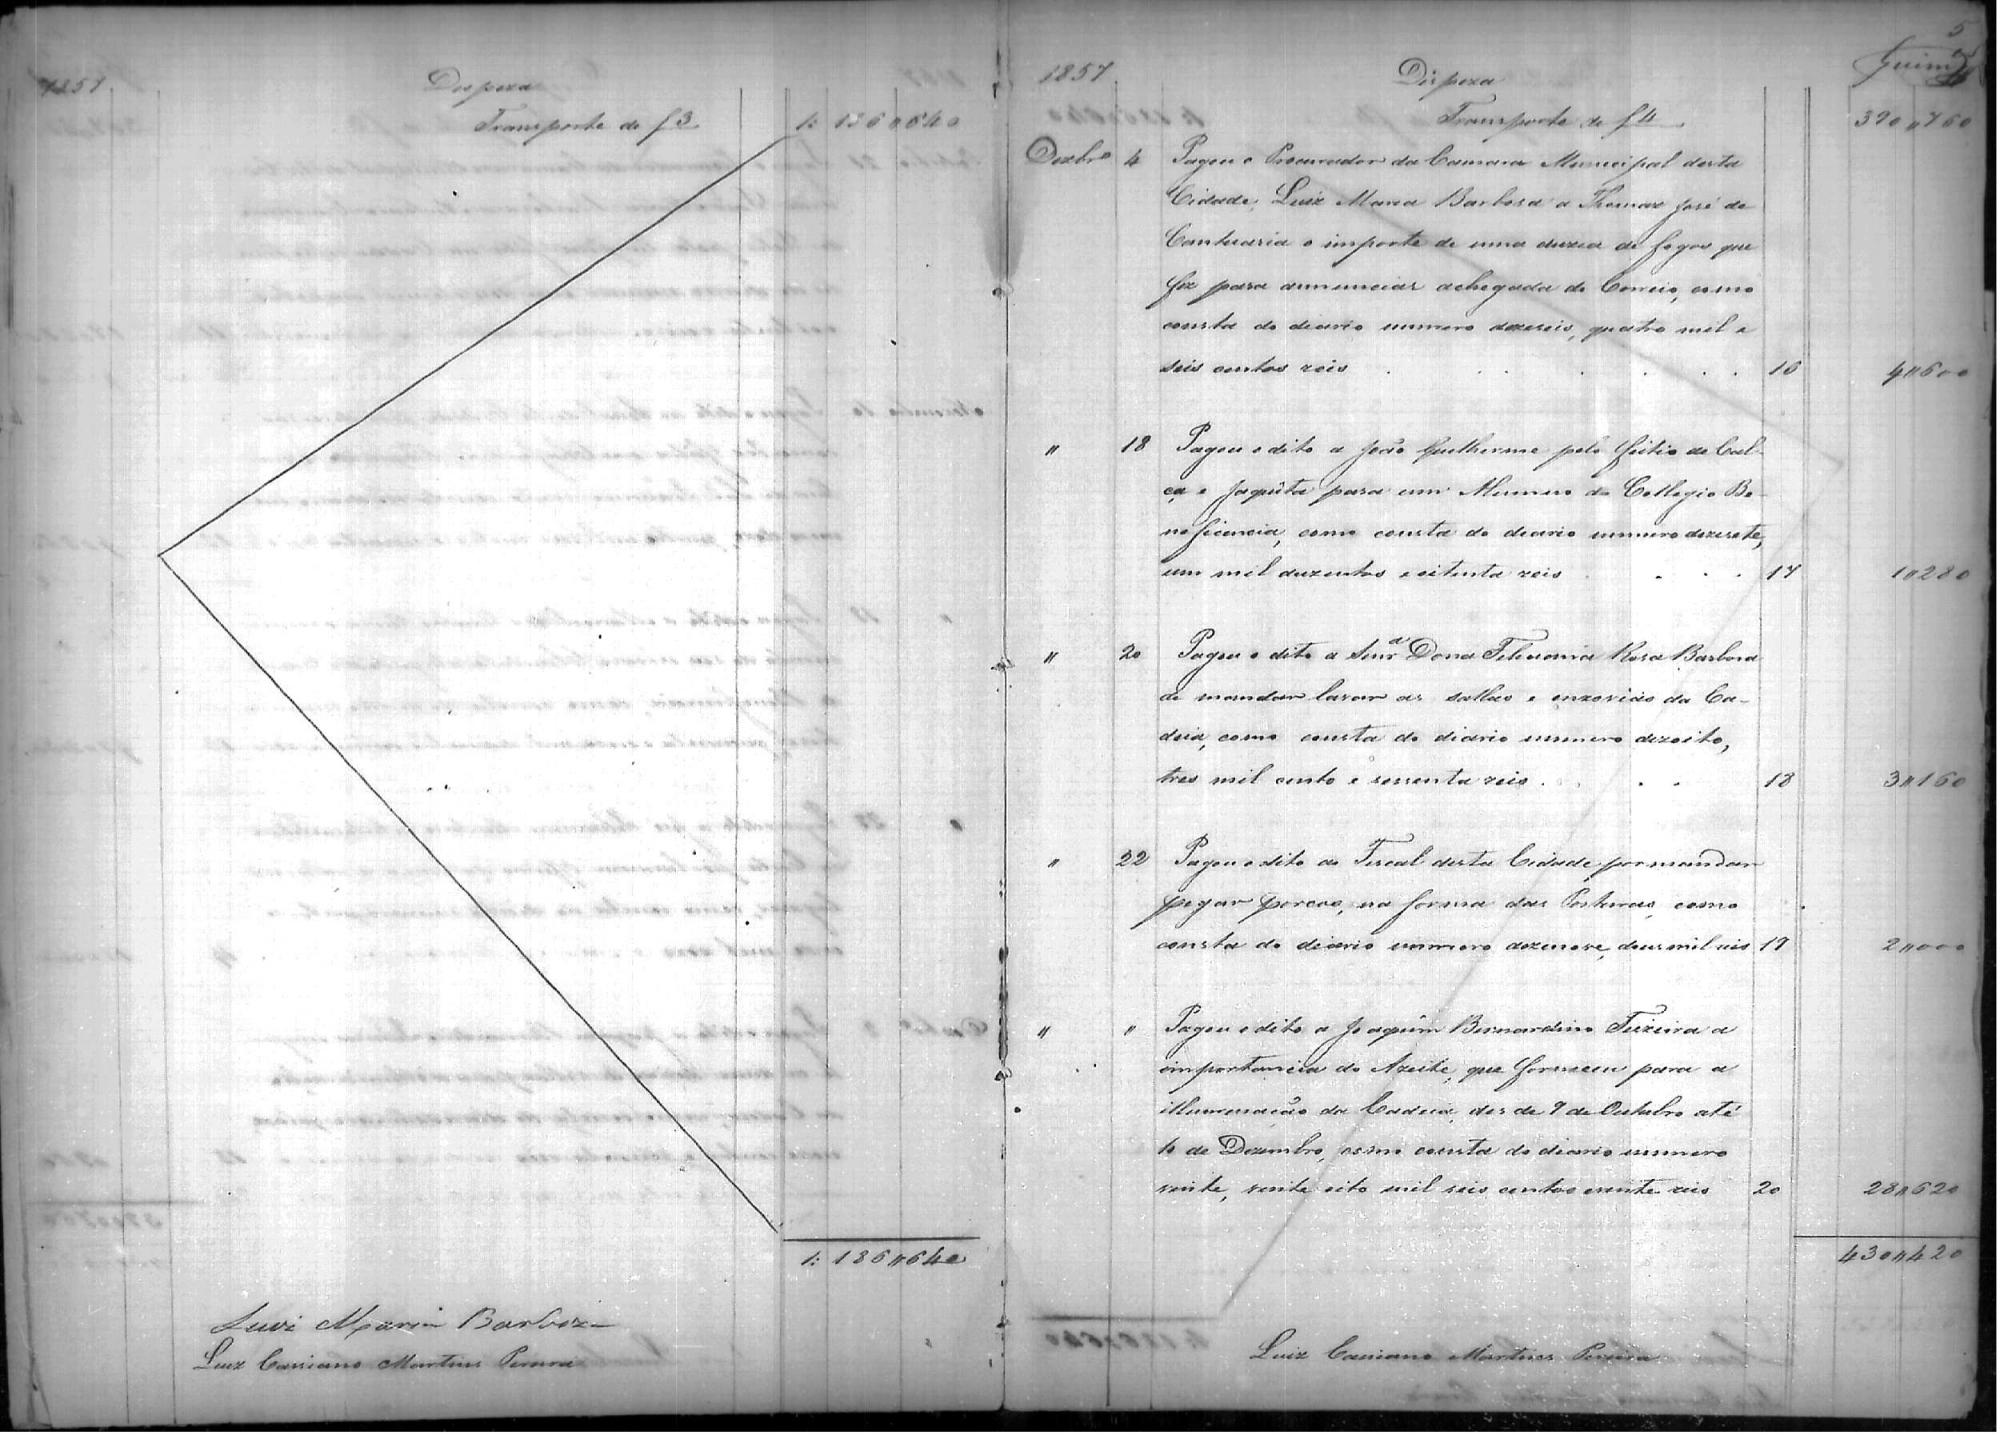 1857
Despeza
Transporte de f 3 1: 186 " 640
1: 186 " 640
Luiz Maria Barboza
Luiz Cassiano Martins Pereira
5
1857
Despeza
Transporte de f 4 390 " 760
Dezbrº 4 Pagou o Procurador da Camara Municipal desta
Cidade, Luiz Maria Barbosa a Thomaz José de
Cantuaria o importe de uma duzia de fogos que
fez para annunciar a chegada do Correio, como
consta do diario numero dezeseis, quatro mil e
seis centos reis . . . . . . 16 4 " 600
" 18 Pagou o dito a João Guilherme pelo feitio de Cal-
ça e Jaqueta para um Alumno do Collegio Be-
neficencia, como consta do diario numero dezesete,
um mil duzentos e oitenta reis . . . 17 1 " 280
" 20 Pagou o dito a Snrª Dona Rosa Barbosa
de mandar lavar as sallas e enxovias da Ca-
deia, como consta do diario numero dezoito,
tres mil cento e sessenta reis . . . 18 3 " 160
" 22 Pagou o dito ao Fiscal desta Cidade, por mandar
pegar porcos, na forma das Posturas, como
consta do diario numero dezenove, dous mil reis 19 2 " 000
" " Pagou o dito a Joaquim Bernardino Teixeira a
importancia do Azeite, que forneceu para a
illuminação da Cadeia, des de 9 de Outubro até
10 de Dezembro, como consta do diario numero
vinte, vinte oito mil seis centos e vinte reis 20 28 " 620
430 " 420
Luiz Cassiano Martins Pereira